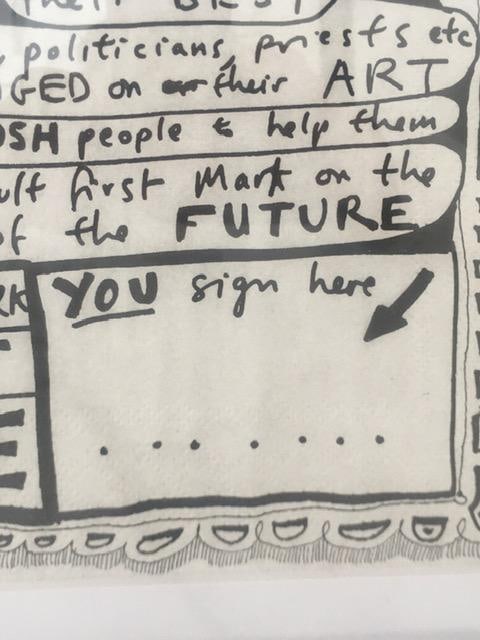 their BEST
politicians, priests etc
GED on their ART
OSH people to help them
ult first Mark on the
of the FUTURE
YOU sign here
. . . . . . .